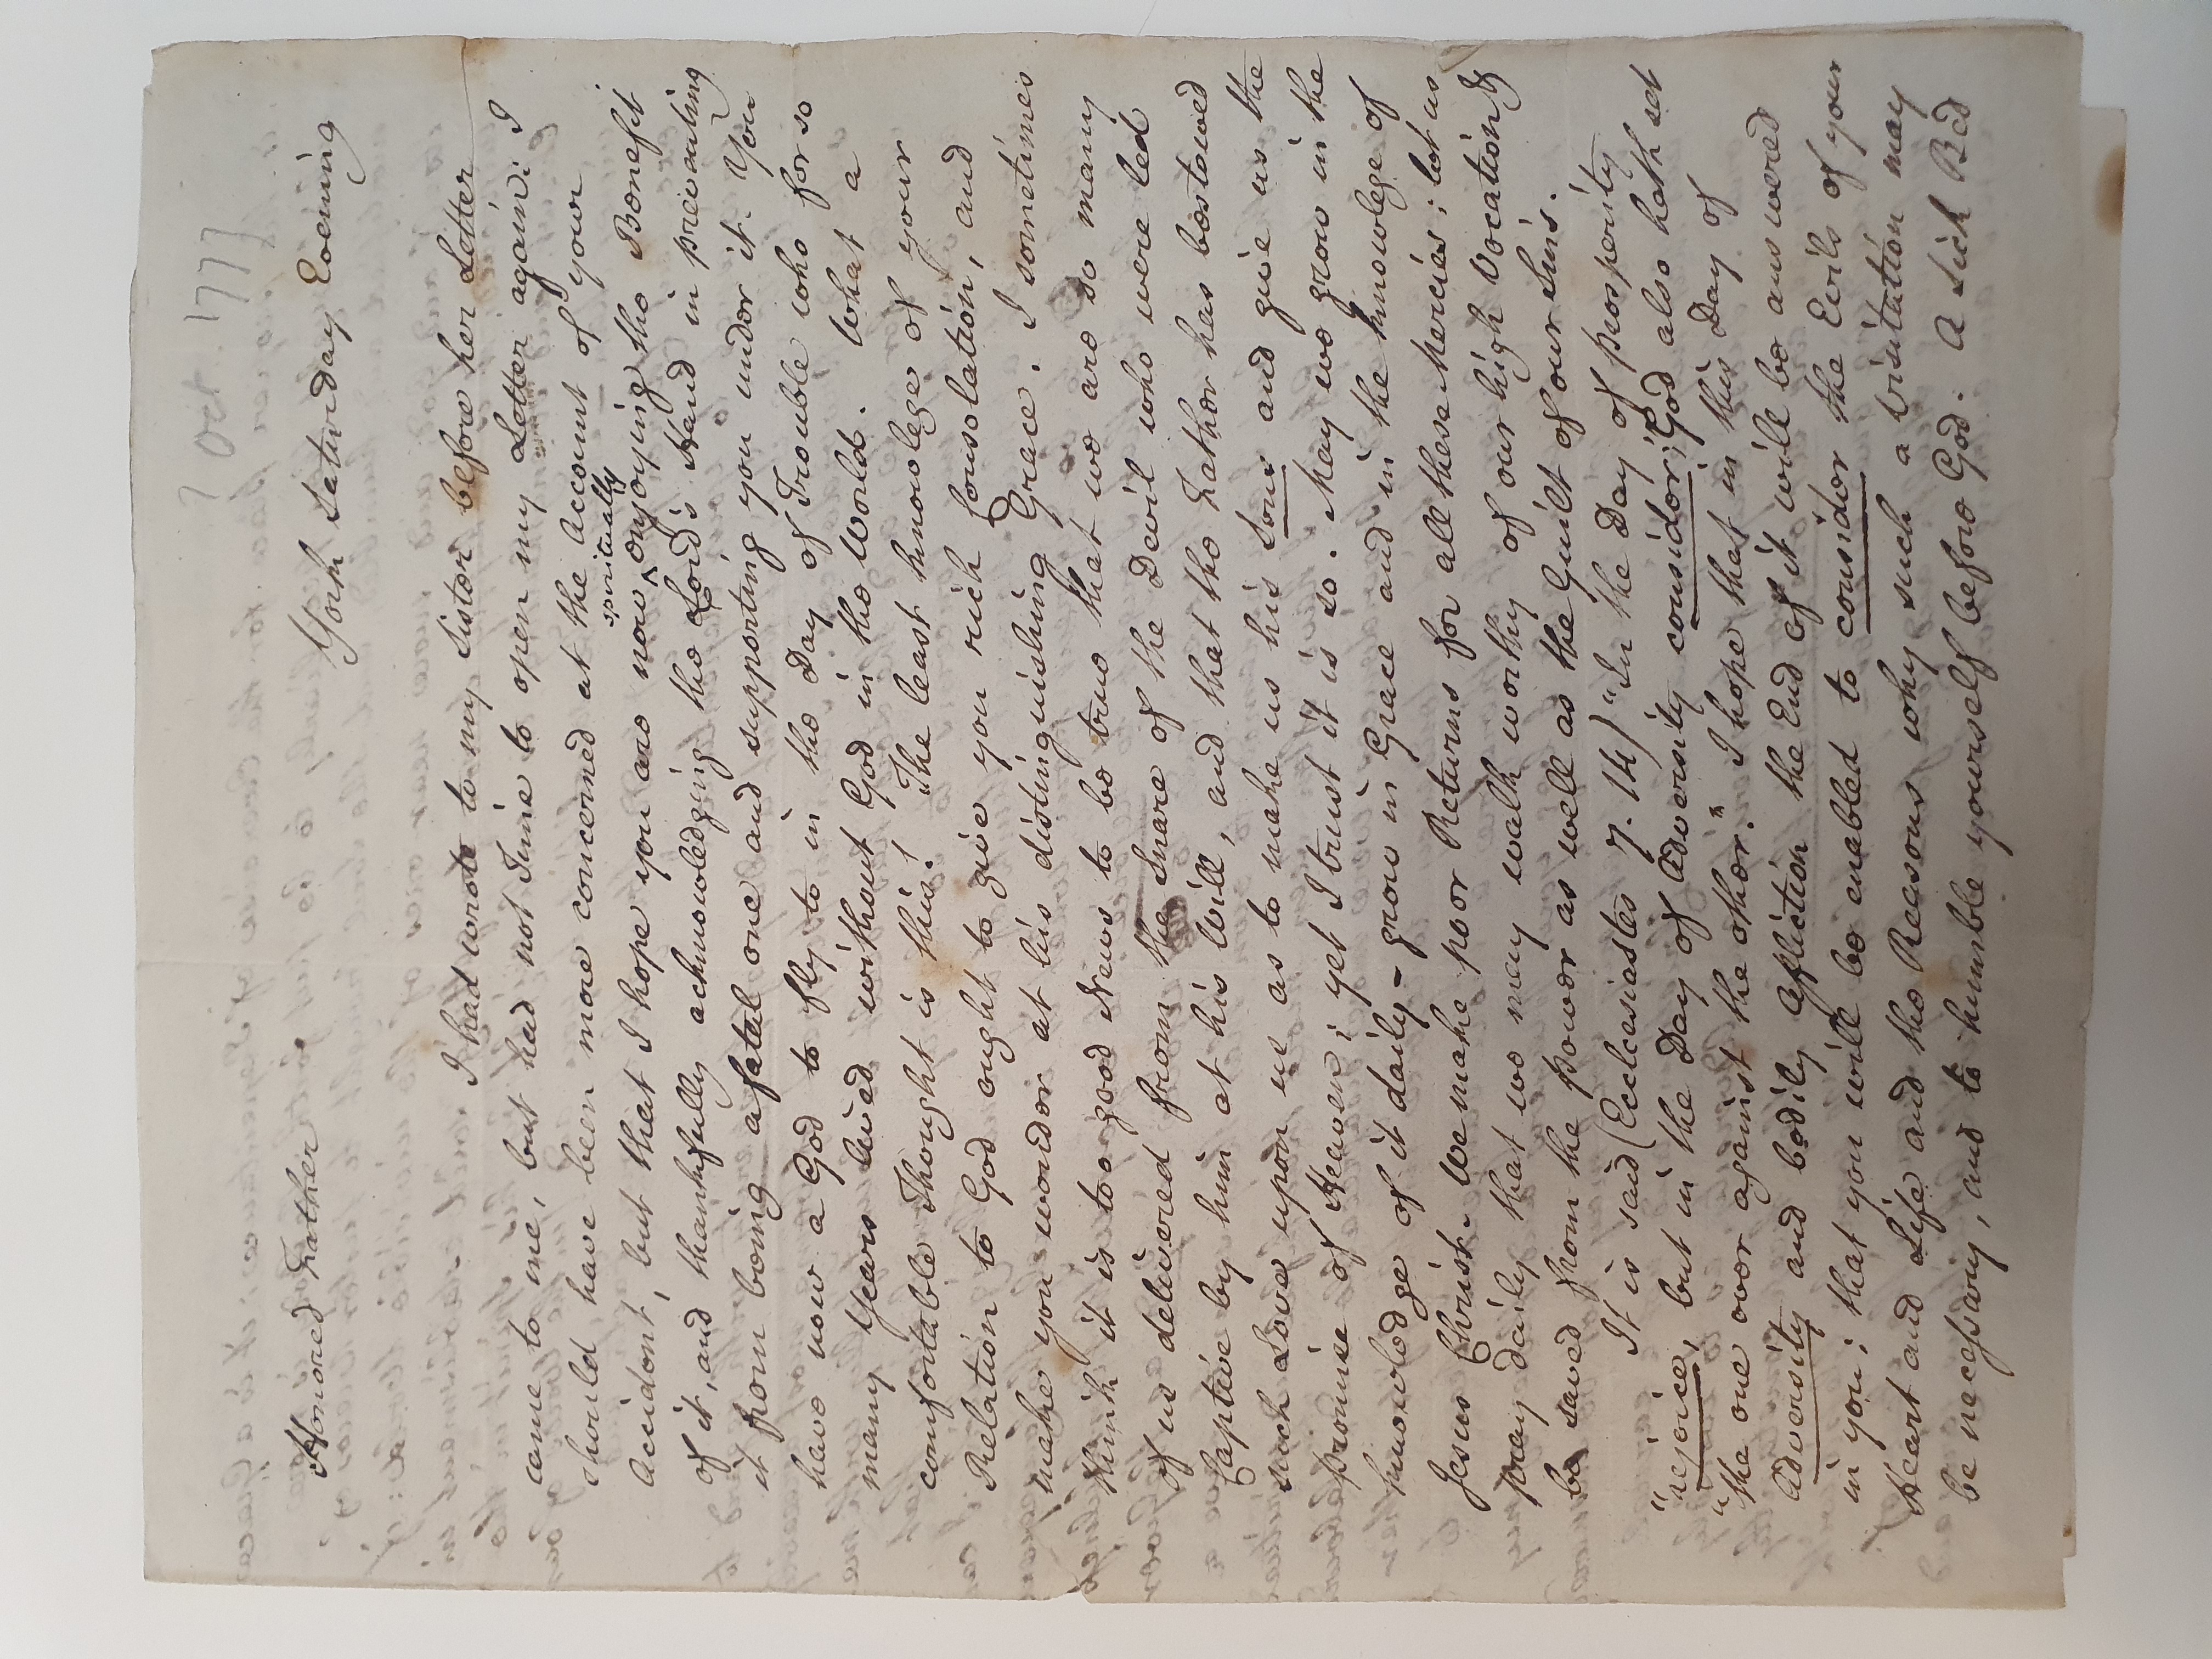 ? Oct. 1777
York Saturday Evening
Honored Father
I had wrote to my Sister before her Letter
came to me, but had not Time to open my Letter again: I
should have been more concerned at the Account of your
Accident, but that I hope you are now ^ spiritually enjoying the Benefit
of it, and thankfully acknowledging the Lord's Hand in preventing
it from being a fatal one and supporting you under it. You
have now a God to fly to in the Day of Trouble who for so
many Years lived without God in the World. What a
comfortable Thought is this! The least knowlege of your
Relation to God ought to give you rich Consolation, and
make you wonder at his distinguishing Grace. I sometimes
think it is too good News to be true that we are so many
of us delivered from the Snare of the Devil who were led
Captive by him at his Will, and that the Father has bestowed
such Love upon us as to make us his Sons and give us the
promise of Heaven; yet I trust it is so. May we grow in the
knowledge of it daily - grow in Grace and in the knowlege of
Jesus Christ. We make poor Returns for all these Mercies; let us
pray daily that we may walk worthy of our high Vocation &
be saved from the Power as well as the Guilt of our Sins.
It is said (Ecclesiastes 7. 14) "In the Day of prosperity
"rejoice, but in the Day of Adversity consider; God also hath set
"the one over against the other." I hope that in this Day of
Adversity and bodily Affliction the End of it will be answered
in you; that you will be enabled to consider the Evils of your
Heart and Life and the Reasons why such a visitation may
be necessary, and to humble yourself before God. A Sick Bed